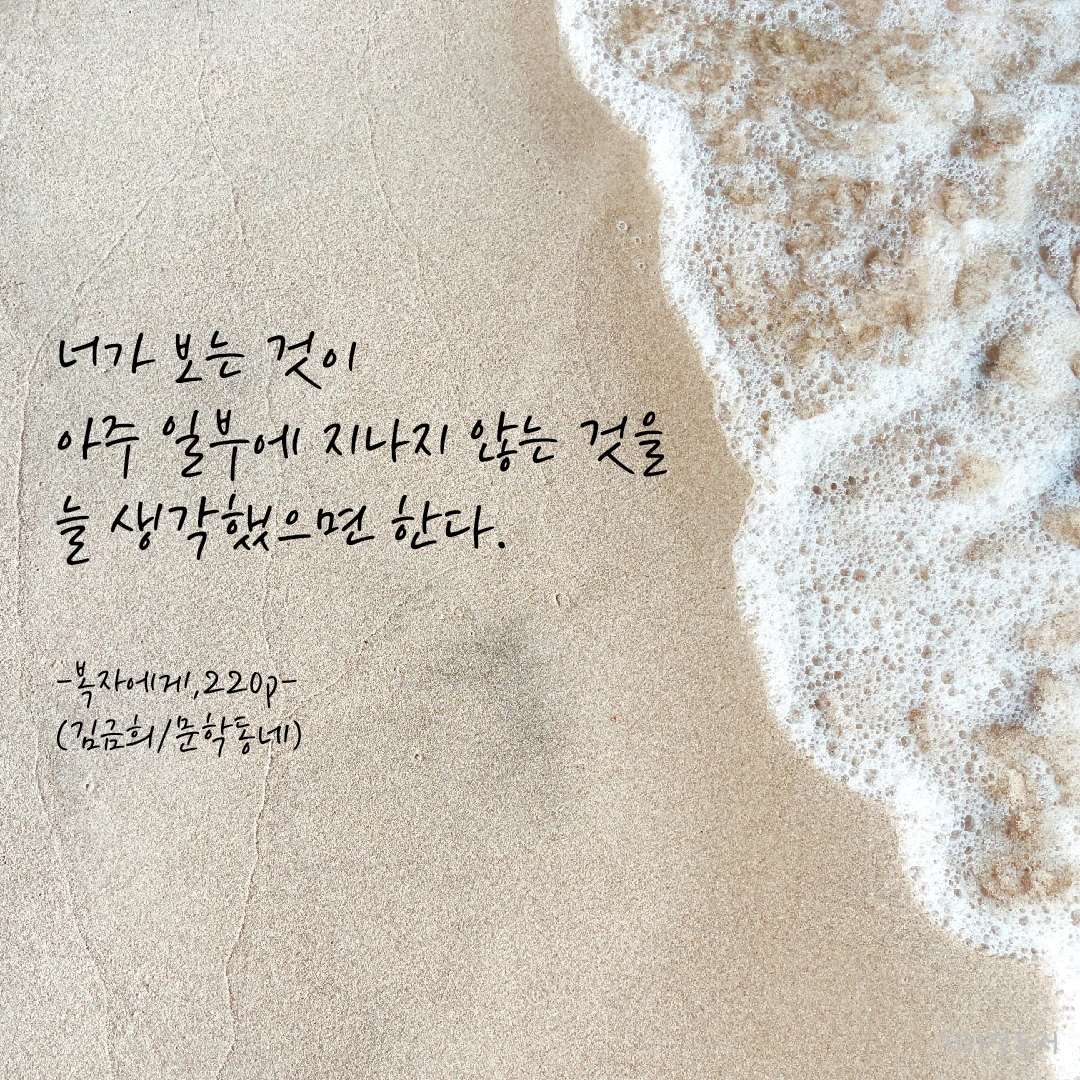 너가 보는 것이
아주 일부에 지나지 않는 것을
늘 생각했으면 한다.
-복자에게,220p-
(김금희/문학동네)